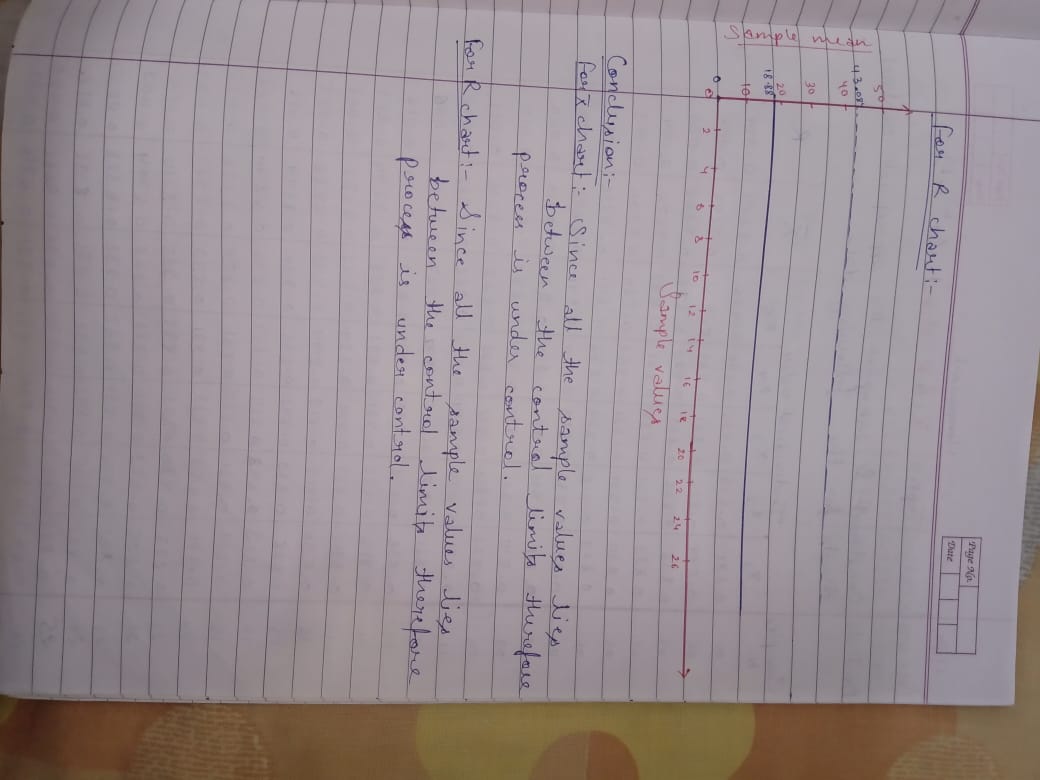 Page No.
Date
for R chart:-
Sample mean
50
43.08
40
30
20
18.88
10
0
0 2 4 6 8 10 12 14 16 18 20 22 24 26
Sample values
Conclusion:-
for x̄ chart:- Since all the sample values lies
between the control limits therefore
process is under control.
for R chart:- Since all the sample values lies
between the control limits therefore
process is under control.